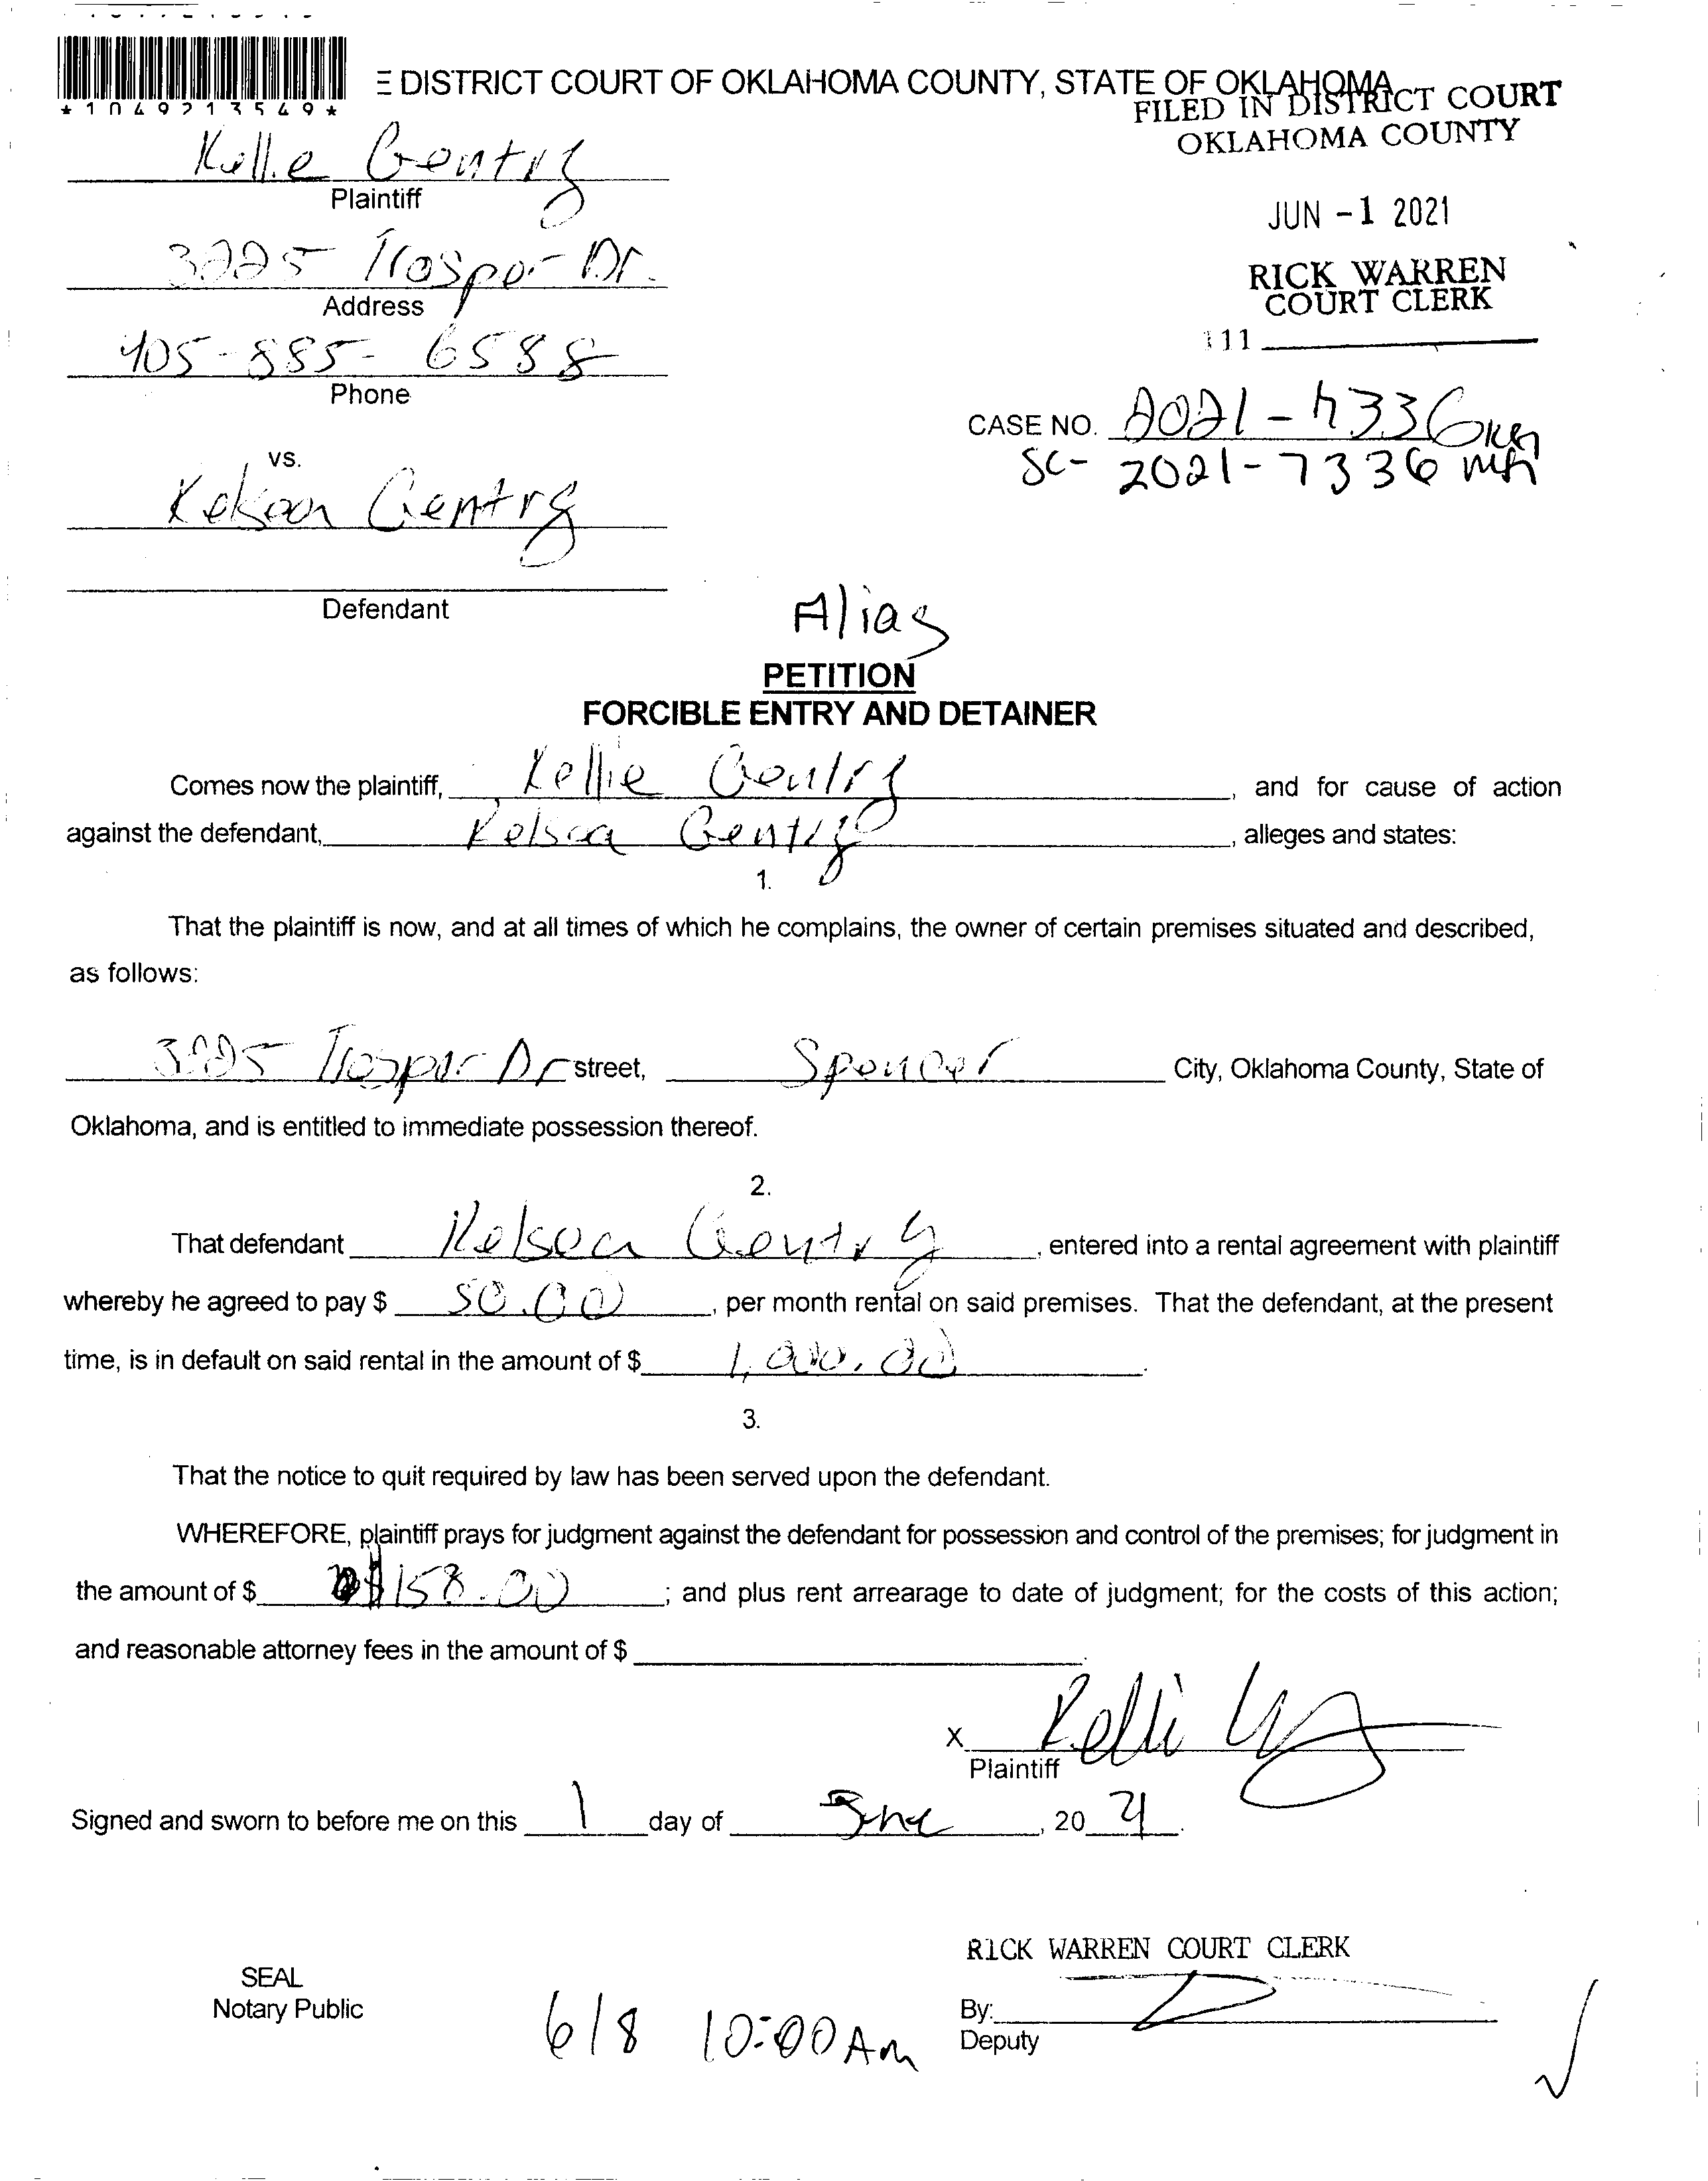 *1049213549*
E DISTRICT COURT OF OKLAHOMA COUNTY, STATE OF OKLAHOMA
FILED IN DISTRICT COURT
OKLAHOMA COUNTY
JUN -1 2021
RICK WARREN
COURT CLERK
111
Kellie Gentry
Plaintiff
3225 Trosper Dr.
Address
405-885-6588
Phone
CASE NO. 2021-7336
SC- 2021-7336
vs.
Kelsea Gentry
Defendant
Alias
PETITION
FORCIBLE ENTRY AND DETAINER
Comes now the plaintiff, Kellie Gentry, and for cause of action
against the defendant, Kelsea Gentry, alleges and states:
1.
That the plaintiff is now, and at all times of which he complains, the owner of certain premises situated and described,
as follows:
3225 Trosper Dr street, Spencer City, Oklahoma County, State of
Oklahoma, and is entitled to immediate possession thereof.
2.
That defendant Kelsea Gentry, entered into a rental agreement with plaintiff
whereby he agreed to pay $ 50.00, per month rental on said premises. That the defendant, at the present
time, is in default on said rental in the amount of $ 1,000.00.
3.
That the notice to quit required by law has been served upon the defendant.
WHEREFORE, plaintiff prays for judgment against the defendant for possession and control of the premises; for judgment in
the amount of $ $158.00; and plus rent arrearage to date of judgment; for the costs of this action;
and reasonable attorney fees in the amount of $
X Kelli
Plaintiff
Signed and sworn to before me on this 1 day of June, 20 21.
RICK WARREN COURT CLERK
SEAL
Notary Public
By:
Deputy
6/8 10:00 Am